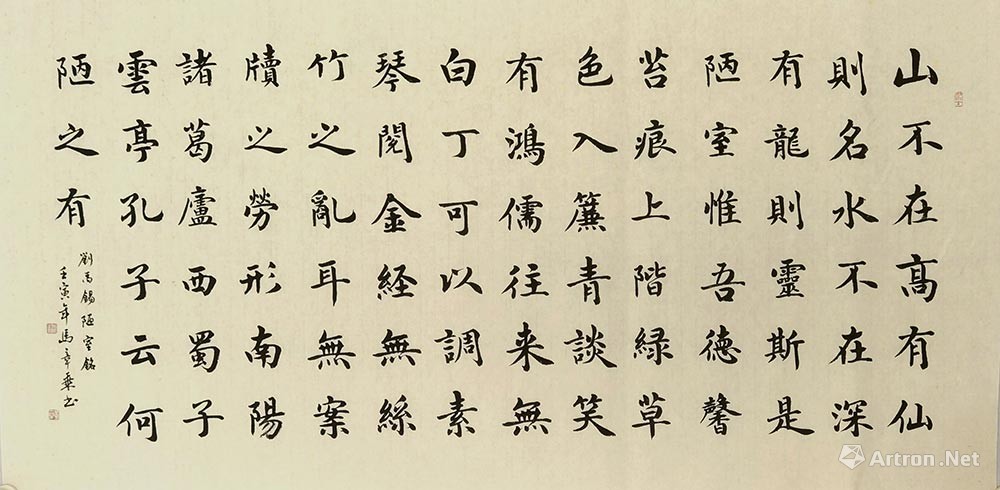 山不在髙有仙
則名水不在深
有龍則靈斯是
陋室惟吾德馨
苔痕上階緑草
色入簾青談笑
有鴻儒往来無
白丁可以調素
琴閱金経無絲
竹之亂耳無案
牘之勞形南陽
諸葛廬西蜀子
雲亭孔子云何
陋之有
劉禹錫陋室銘
壬寅年馬章书
Artron.Net